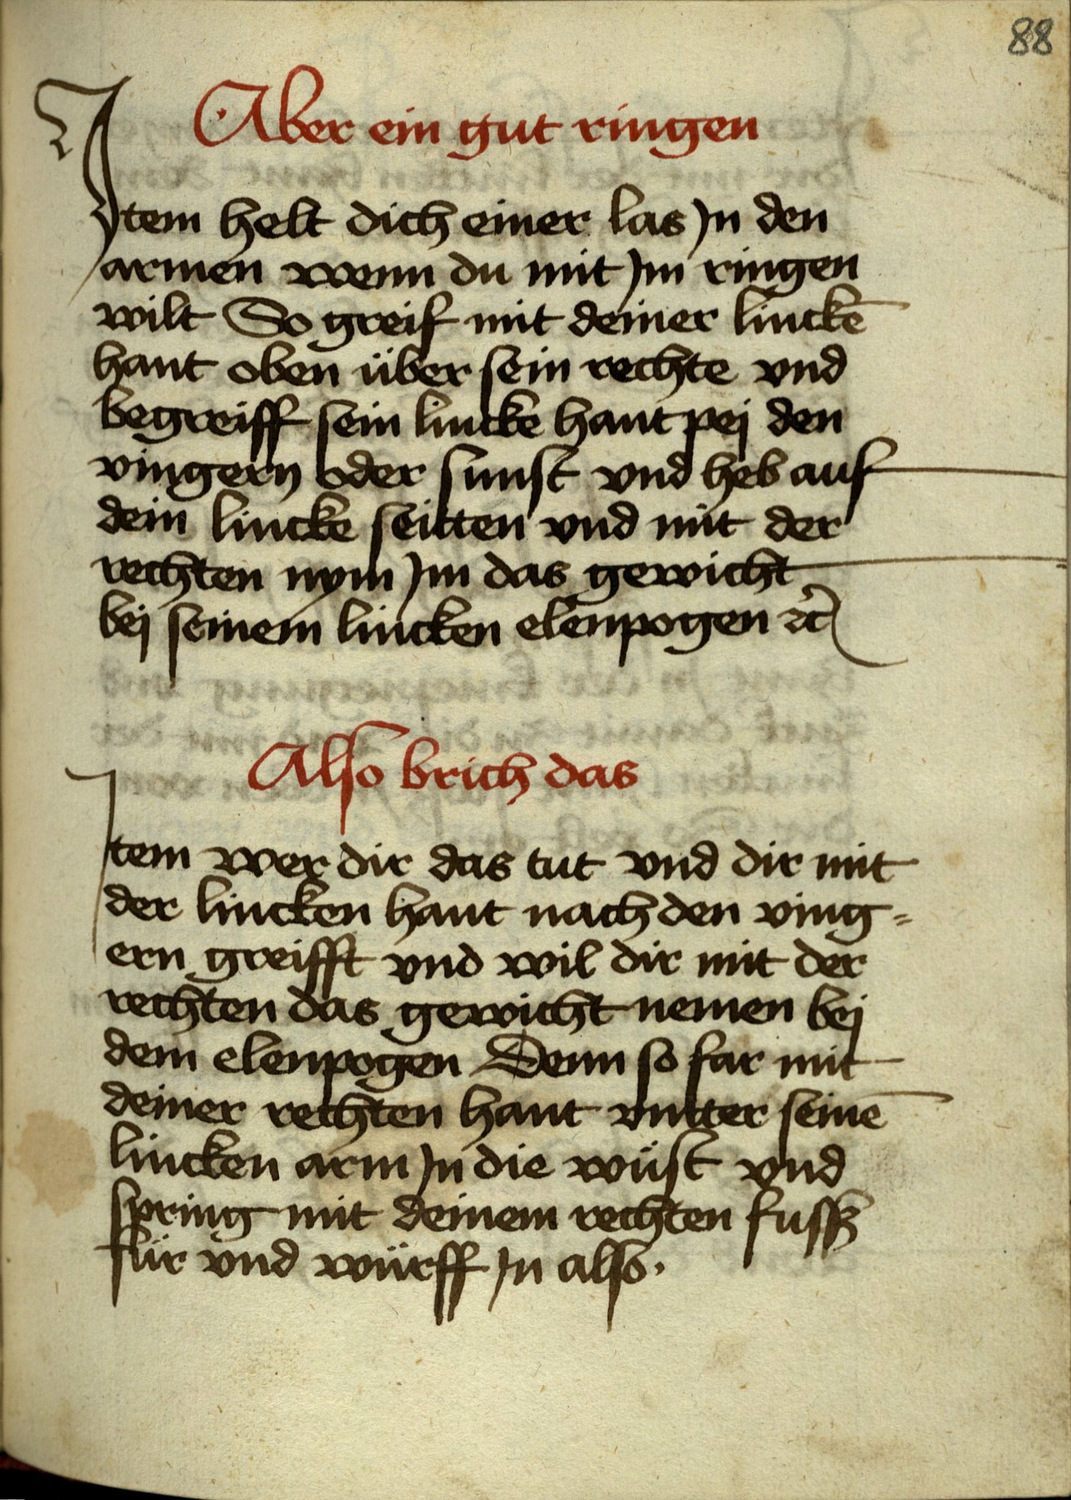 88
Aber ein gut ringen
Jtem helt dich einer las Jn den
armen wenn du mit Jm ringen
wilt So greif mit deiner linckē
hant oben über sein rechte vnd
begreiff sein lincke hant pej den
vingern oder sunst vnd heb auf
dein lincke seitten vnd mit der
rechten nym Jm das gewicht
bej seinem lincken elenpogen ꝛc̄
Also brich das
Jtem wer dir das tut vnd dir mit
der lincken hant nach den ving=
ern greifft vnd wil dir mit der
rechten das gewicht nemen bej
dem elenpogen Denn so far mit
deiner rechten hant vntter seinē
lincken arm Jn die wüst vnd
spring mit deinem rechten fussß
für vnd würff Jn also.